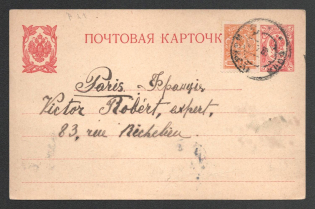 ПОЧТОВАЯ КАРТОЧК
Paris. Франція.
Victor Robért, expert,
83, rue Richelieu